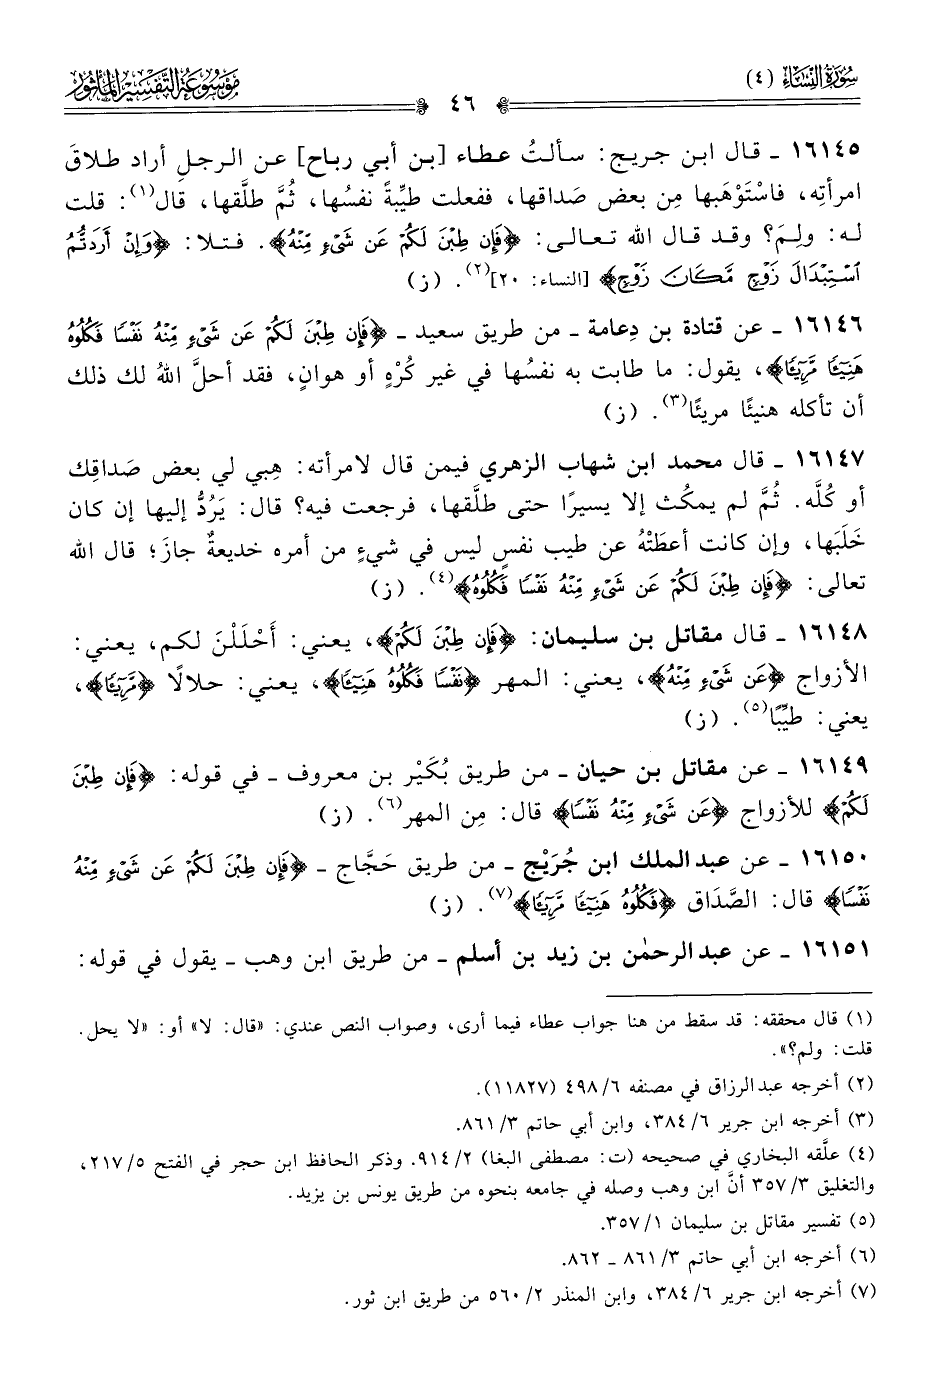 سُورَةُ النِّسَاءِ (٤)
٤٦
مَوْسُوعَةُ التَّفْسِيرِ المَأْثُورِ
١٦١٤٥ ـ قال ابن جريج: سألتُ عطاء [بن أبي رباح] عن الرجلِ أراد طلاقَ
امرأتِه، فاسْتَوْهَبها مِن بعض صَداقها، ففعلت طيِّبةً نفسُها، ثُمَّ طلَّقها، قال(١): قلت
له: ولِمَ؟ وقد قال الله تعالى: ﴿فَإِن طِبْنَ لَكُمْ عَن شَىْءٍ مِّنْهُ﴾. فتلا: ﴿وَإِنْ أَرَدتُّمُ
ٱسْتِبْدَالَ زَوْجٍ مَّكَانَ زَوْجٍ﴾ [النساء: ٢٠](٢). (ز)
١٦١٤٦ ـ عن قتادة بن دِعامة ـ من طريق سعيد ـ ﴿فَإِن طِبْنَ لَكُمْ عَن شَىْءٍ مِّنْهُ نَفْسًا فَكُلُوهُ
هَنِيٓـًٔا مَّرِيٓـًٔا﴾، يقول: ما طابت به نفسُها في غير كُرْهٍ أو هوانٍ، فقد أحلَّ اللهُ لك ذلك
أن تأكله هنيئًا مريئًا(٣). (ز)
١٦١٤٧ ـ قال محمد ابن شهاب الزهري فيمن قال لامرأته: هِبي لي بعض صَداقِك
أو كُلَّه. ثُمَّ لم يمكُث إلا يسيرًا حتى طلَّقها، فرجعت فيه؟ قال: يَرُدُّ إليها إن كان
خَلَبَها، وإن كانت أعطَتْهُ عن طيب نفسٍ ليس في شيءٍ من أمره خديعةٌ جازَ؛ قال الله
تعالى: ﴿فَإِن طِبْنَ لَكُمْ عَن شَىْءٍ مِّنْهُ نَفْسًا فَكُلُوهُ﴾(٤). (ز)
١٦١٤٨ ـ قال مقاتل بن سليمان: ﴿فَإِن طِبْنَ لَكُمْ﴾، يعني: أَحْلَلْنَ لكم، يعني:
الأزواج ﴿عَن شَىْءٍ مِّنْهُ﴾، يعني: المهر ﴿نَفْسًا فَكُلُوهُ هَنِيٓـًٔا﴾، يعني: حلالًا ﴿مَّرِيٓـًٔا﴾،
يعني: طيِّبًا(٥). (ز)
١٦١٤٩ ـ عن مقاتل بن حيان ـ من طريق بُكَيْر بن معروف ـ في قوله: ﴿فَإِن طِبْنَ
لَكُمْ﴾ للأزواج ﴿عَن شَىْءٍ مِّنْهُ نَفْسًا﴾ قال: مِن المهر(٦). (ز)
١٦١٥٠ ـ عن عبد الملك ابن جُرَيْج ـ من طريق حَجَّاج ـ ﴿فَإِن طِبْنَ لَكُمْ عَن شَىْءٍ مِّنْهُ
نَفْسًا﴾ قال: الصَّدَاق ﴿فَكُلُوهُ هَنِيٓـًٔا مَّرِيٓـًٔا﴾(٧). (ز)
١٦١٥١ ـ عن عبد الرحمٰن بن زيد بن أسلم ـ من طريق ابن وهب ـ يقول في قوله:
(١) قال محققه: قد سقط من هنا جواب عطاء فيما أرى، وصواب النص عندي: «قال: لا» أو: «لا يحل.
قلت: ولم؟».
(٢) أخرجه عبد الرزاق في مصنفه ٦/ ٤٩٨ (١١٨٢٧).
(٣) أخرجه ابن جرير ٦/ ٣٨٤، وابن أبي حاتم ٣/ ٨٦١.
(٤) علَّقه البخاري في صحيحه (ت: مصطفى البغا) ٢/ ٩١٤. وذكر الحافظ ابن حجر في الفتح ٥/ ٢١٧،
والتغليق ٣/ ٣٥٧ أنَّ ابن وهب وصله في جامعه بنحوه من طريق يونس بن يزيد.
(٥) تفسير مقاتل بن سليمان ١/ ٣٥٧.
(٦) أخرجه ابن أبي حاتم ٣/ ٨٦١ ـ ٨٦٢.
(٧) أخرجه ابن جرير ٦/ ٣٨٤، وابن المنذر ٢/ ٥٦٠ من طريق ابن ثور.